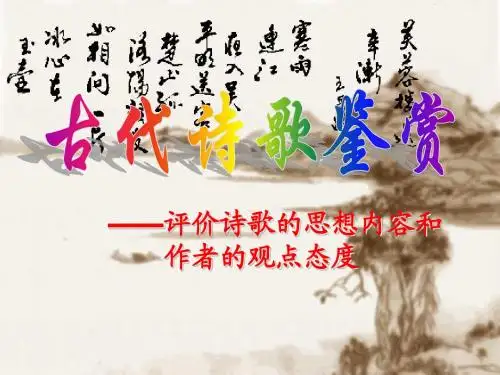 芙蓉楼
辛渐
王
寒雨
连江
夜入吴
平明送客
楚山孤
洛阳亲友
如相问一片
冰心在
玉壶
古代诗歌鉴赏
——评价诗歌的思想内容和
作者的观点态度